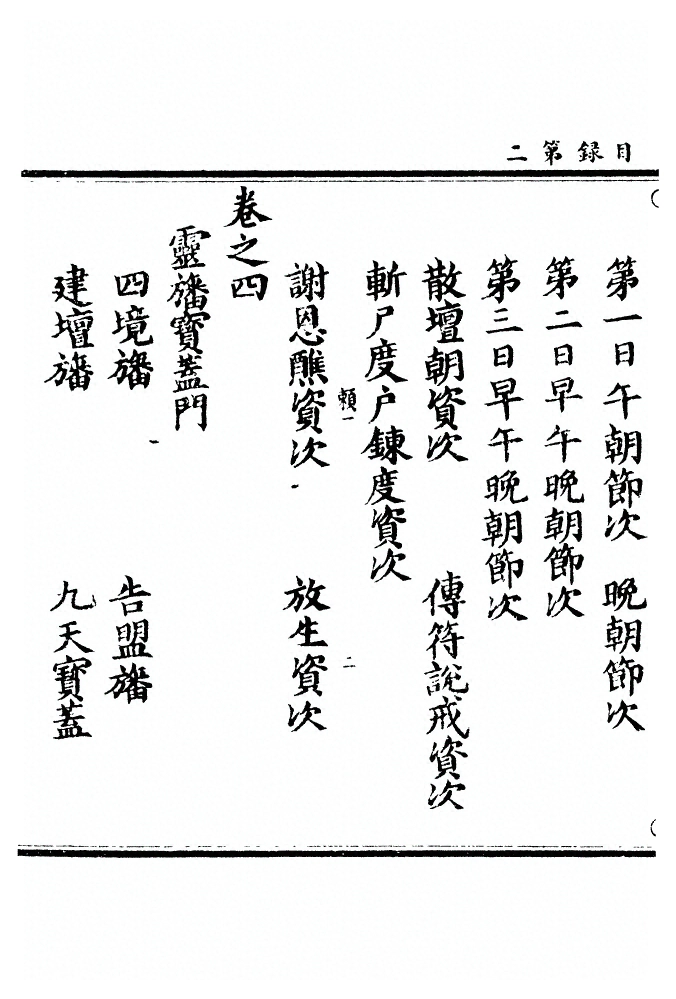 目録第二
第一日午朝節次　晚朝節次
第二日早午晚朝節次
第三日早午晚朝節次
散壇朝資次　傳符說戒資次
斬尸度戶鍊度資次
頼一　二
謝恩醮資次　放生資次
卷之四
靈旛寳蓋門
四境旛　告盟旛
建壇旛　九天寳蓋